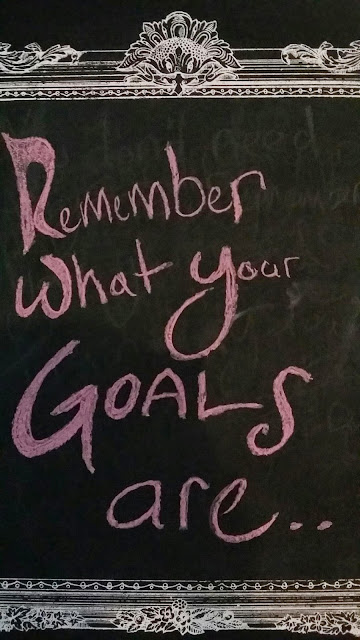 Remember
what your
GOALS
are..